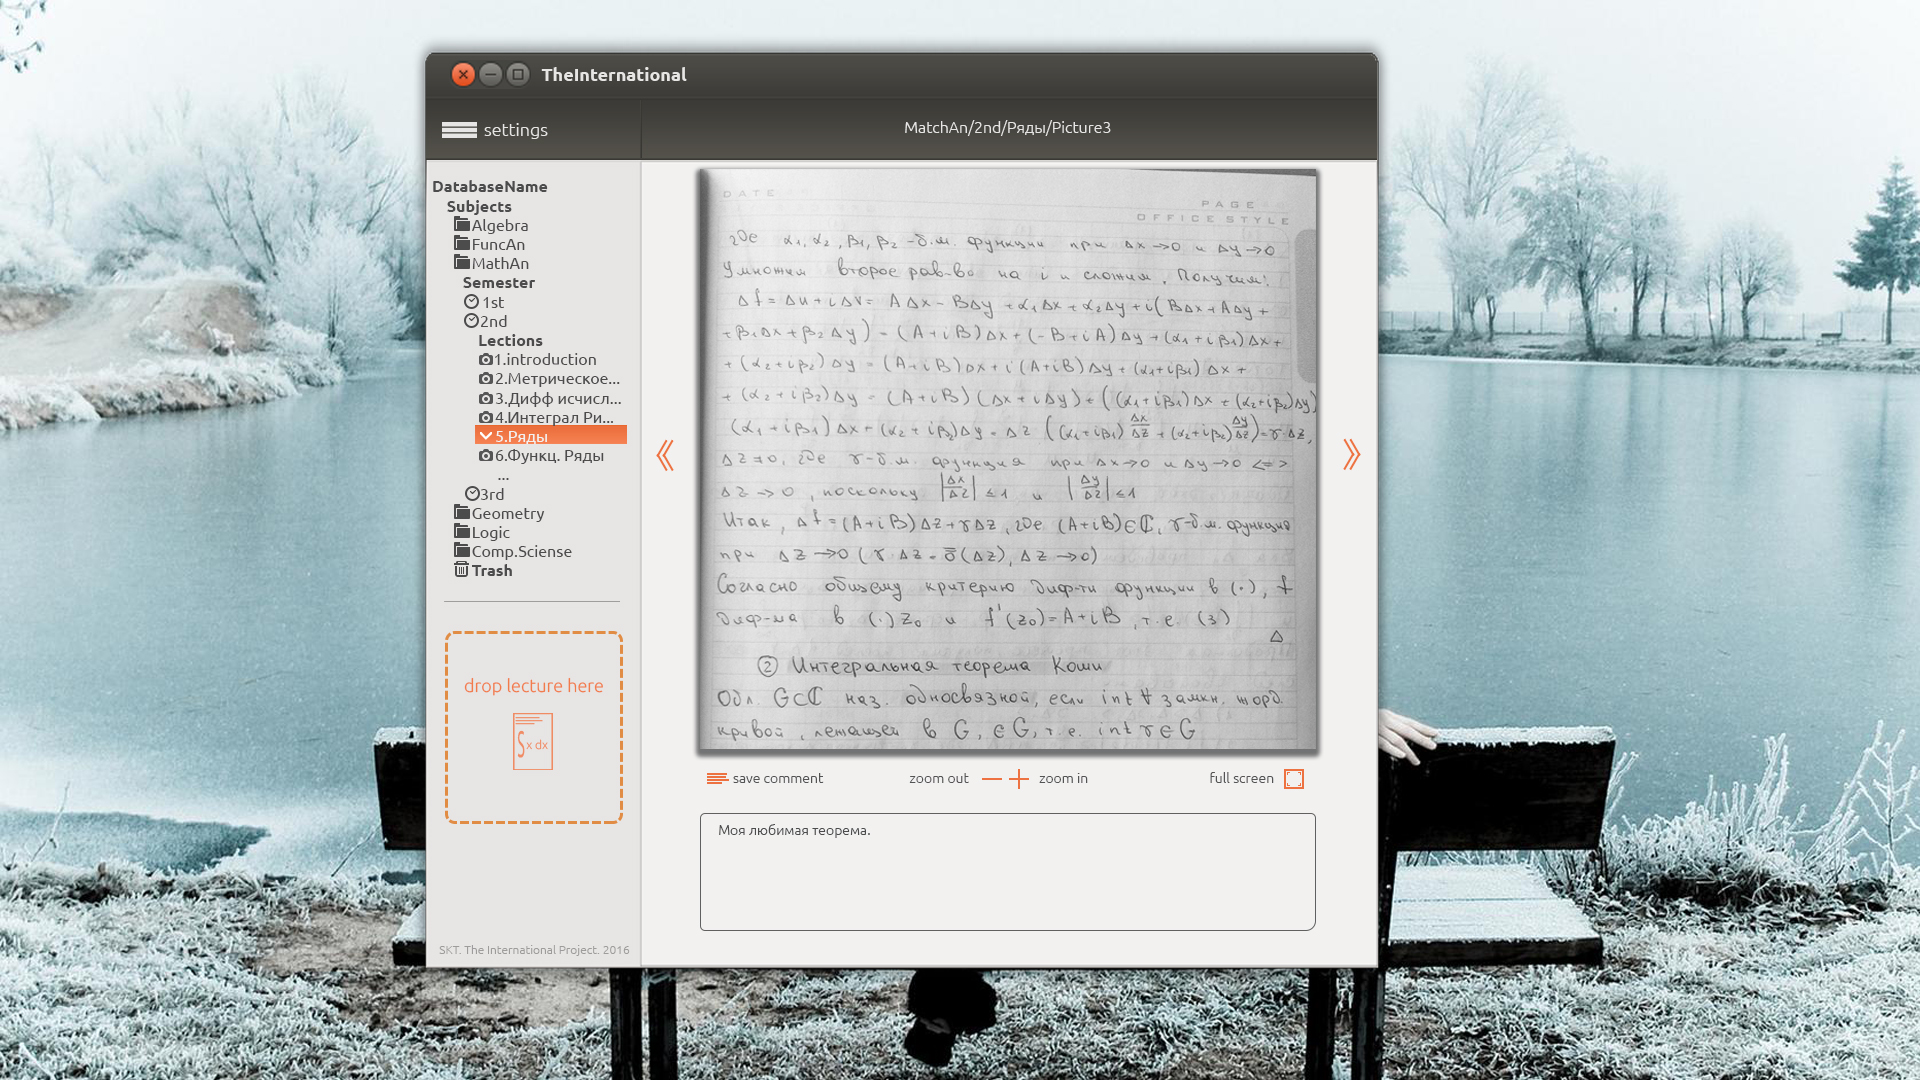 TheInternational
settings
MatchAn/2nd/Ряды/Picture3
DatabaseName
Subjects
Algebra
FuncAn
MathAn
Semester
1st
2nd
Lections
1.introduction
2.Метрическое...
3.Дифф исчисл...
4.Интеграл Ри...
5.Ряды
6.Функц. Ряды
...
3rd
Geometry
Logic
Comp.Sciense
Trash
drop lecture here
∫x dx
SKT. The International Project. 2016
DATE
PAGE
OFFICE STYLE
где α₁, α₂, β₁, β₂ -б.м. функции при Δx→0 и Δy→0
Умножим второе рав-во на i и сложим. Получим:
Δf = Δu + iΔv = AΔx - BΔy + α₁Δx + α₂Δy + i(BΔx + AΔy +
+ β₁Δx + β₂Δy) = (A+iB)Δx + (-B+iA)Δy + (α₁+iβ₁)Δx +
+ (α₂+iβ₂)Δy = (A+iB)Δx + i(A+iB)Δy + (α₁+iβ₁)Δx +
+ (α₂+iβ₂)Δy = (A+iB)(Δx+iΔy) + ((α₁+iβ₁)Δx + (α₂+iβ₂)Δy)
(α₁+iβ₁)Δx + (α₂+iβ₂)Δy = Δz ((α₁+iβ₁) Δx/Δz + (α₂+iβ₂) Δy/Δz) = γΔz,
Δz≠0, где γ-б.м. функция при Δx→0 и Δy→0 <=>
Δz→0, поскольку |Δx/Δz| ≤ 1 и |Δy/Δz| ≤ 1
Итак, Δf = (A+iB)Δz + γΔz, где (A+iB)∈ℂ, γ-б.м. функция
при Δz→0 (γ·Δz = o̅(Δz), Δz→0)
Согласно общему критерию диф-ти функции в (·), f
диф-ма в (·)z₀ и f'(z₀) = A+iB, т.е. (3)
Δ
② Интегральная теорема Коши
Обл. G⊂ℂ наз. односвязной, если int ∀ замкн. жорд.
кривой, лежащей в G, ∈G, т.е. int γ∈G
save comment
zoom out
zoom in
full screen
Моя любимая теорема.